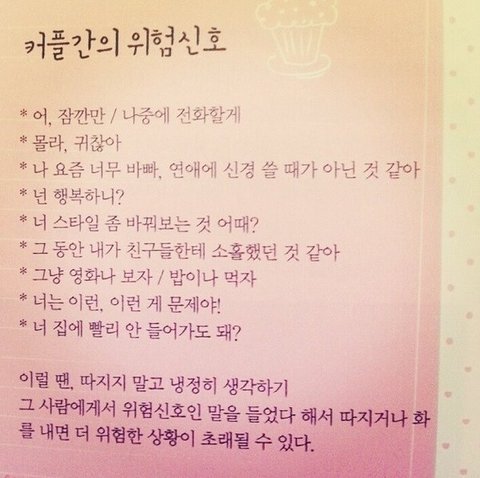 커플간의 위험신호
* 어, 잠깐만 / 나중에 전화할게
* 몰라, 귀찮아
* 나 요즘 너무 바빠, 연애에 신경 쓸 때가 아닌 것 같아
* 넌 행복하니?
* 너 스타일 좀 바꿔보는 것 어때?
* 그 동안 내가 친구들한테 소홀했던 것 같아
* 그냥 영화나 보자 / 밥이나 먹자
* 너는 이런, 이런 게 문제야!
* 너 집에 빨리 안 들어가도 돼?
이럴 땐, 따지지 말고 냉정히 생각하기
그 사람에게서 위험신호인 말을 들었다 해서 따지거나 화
를 내면 더 위험한 상황이 초래될 수 있다.